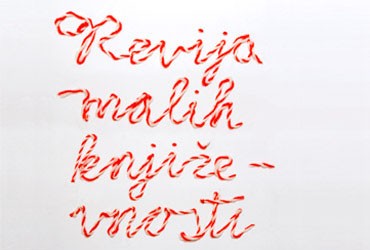 Revija
malih
knjiže-
vnosti